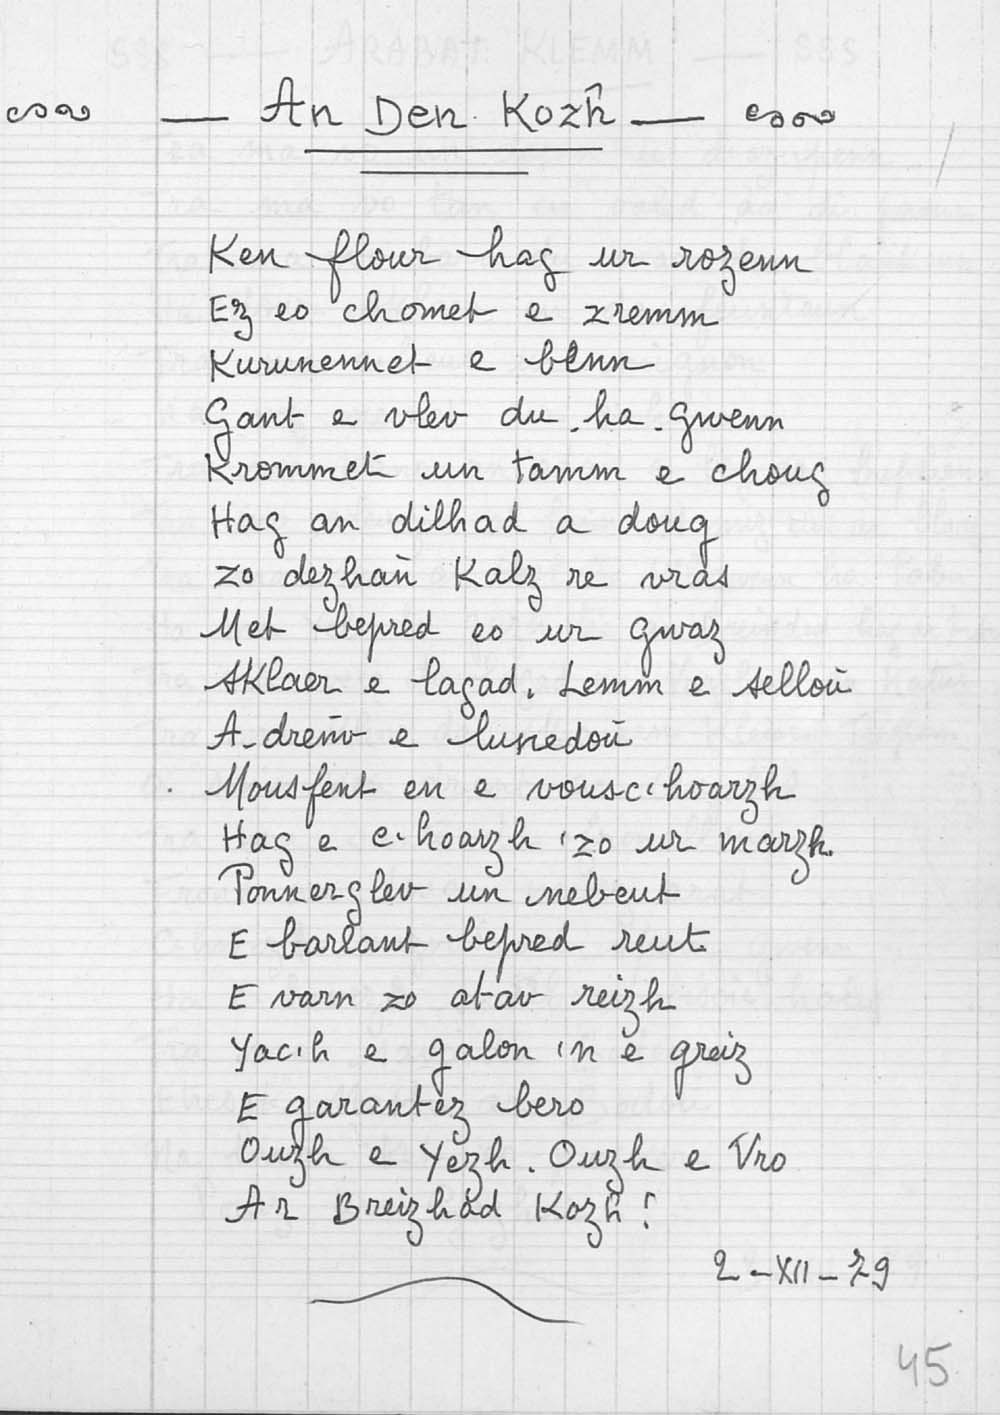 An Den Kozh
Ken flour hag ur rozenn
Ez eo chomet e zremm
Kurunennet e benn
Gant e vlev du-ha-gwenn
Krommet un tamm e choug
Hag an dilhad a doug
zo dezhañ kalz re vras
Met bepred eo ur gwaz
Sklaer e lagad. Lemm e selloù
A-dreñv e lunedoù
Mousfent en e vousc'hoarzh
Hag e c'hoarzh 'zo ur marzh.
Ponnerglev un nebeut
E barlant bepred reut.
E varn zo atav reizh
Yac'h e galon 'n e greiz
E garantez bero
Ouzh e Yezh. Ouzh e Vro
Ar Breizhad Kozh!
2-XII-79
45